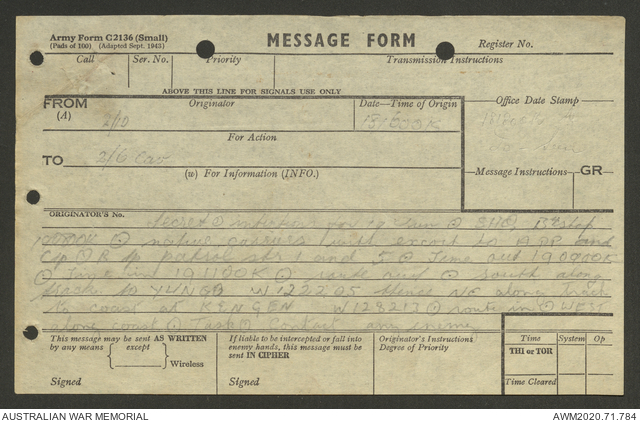 Army Form C2136 (Small)
(Pads of 100) (Adapted Sept. 1943)
MESSAGE FORM
Register No.
Call
Ser. No.
Priority
Transmission Instructions
ABOVE THIS LINE FOR SIGNALS USE ONLY
FROM
(A)
Originator
Date—Time of Origin
Office Date Stamp
2/10
181600K
For Action
TO
2/6 Cav
(W) For Information (INFO.)
Message Instructions
GR
ORIGINATOR'S No.
Secret for 19 Jun
native carriers with escort to and
patrol str 1 and 5 Time out 190900K
Time in 191100K route out south along
track to YUNGO W122205 thence NE along track
to coast at KENGEN W128213 route in West
along coast Task Contact any enemy
This message may be sent AS WRITTEN
by any means
except
Wireless
Signed
If liable to be intercepted or fall into
enemy hands, this message must be
sent IN CIPHER
Signed
Originator's Instructions
Degree of Priority
Time
System
Op
THI or TOR
Time Cleared
AUSTRALIAN WAR MEMORIAL
AWM2020.71.784